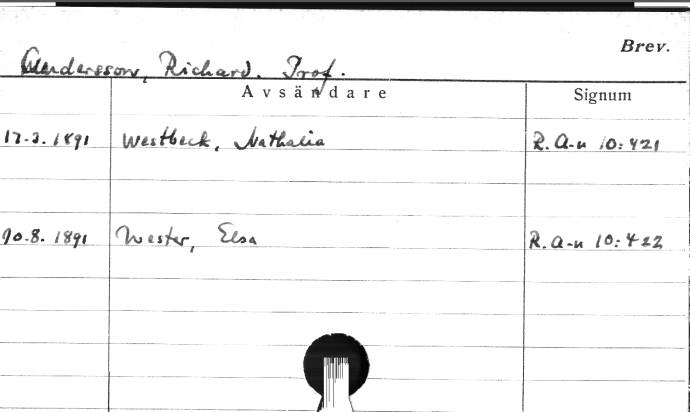 Brev.
Andersson, Richard. Prof.
Avsändare Signum
17.3.1891 Westbeck, Nathalia R. A-n 10:421
10.8.1891 Wester, Elsa R. A-n 10:422